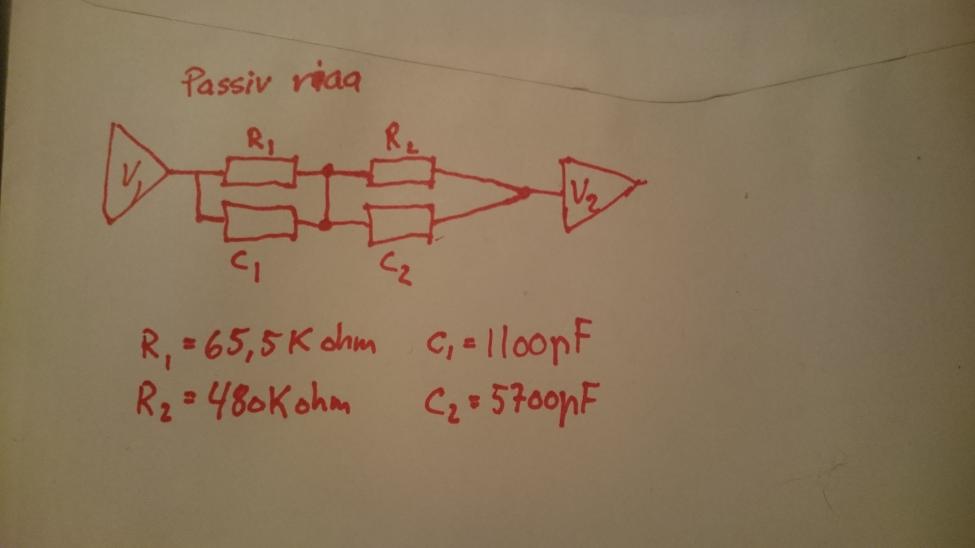 Passiv riaa
R₁ R₂
V₁ V₂
C₁ C₂
R₁ = 65,5K ohm C₁ = 1100pF
R₂ = 480K ohm C₂ = 5700pF